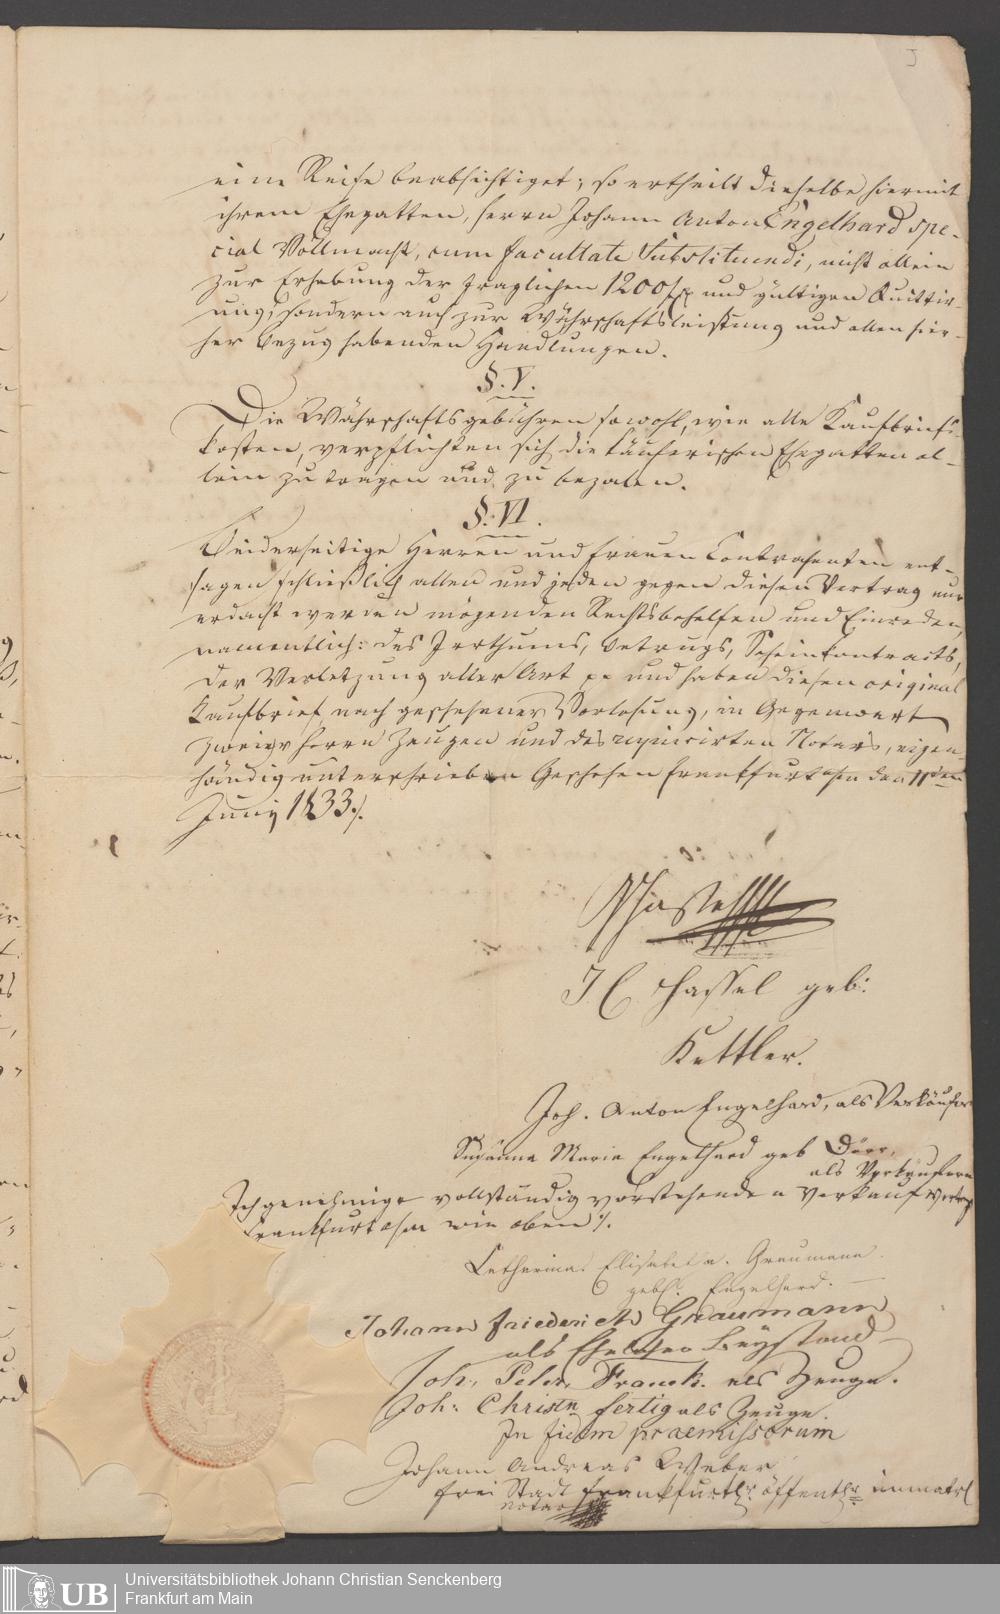 eine Reise beabsichtiget; so ertheilt dieselbe hiermit
ihrem Ehegatten, Herrn Johann Anton Engelhard spe-
cial Vollmacht, cum facultate Substituendi, nicht allein
zur Erhebung der fraglichen 1200 und gültigen Quittir-
ung, sondern auch zur Währschaftsleistung und allen hier-
her bezug habenden Handlungen.
§. V.
Die Währschaftsgebühren sowohl, wie alle Kaufbriefs-
kosten, verpflichten sich die käuferischen Ehegatten al-
lein zu tragen und zu bezalen.
§. VI.
Beiderseitige Herren und Frauen Contrahenten ent-
sagen schließlich allen und jeden gegen diesen Vertrag nur
erdacht werden mögenden Rechtsbehelfen und Einreden,
namentlich: des Irrthums, Betrugs, Scheinkontracts,
der Verletzung aller Art pp und haben diesen original
Kaufbrief nach geschehener Vorlesung, in Gegenwart
zweier Herrn Zeugen und des requirirten Notars, eigen-
händig unterschrieben Geschehen Frankfurt a/m den 11ten
Juny 1833./.
Hassel
J C Hassel geb:
Kettler.
Joh. Anton Engelhard, als Verkäufer
Susanna Maria Engelhard geb Dörr,
als Verkäuferin
Ich genehmige vollständig vorstehenden Verkaufvertrag
Frankfurt a/m wie oben ./.
Catharina Elisabetha Graumann
gebh. Engelhard. —
Johann Friederich Graumann
als Ehelicher Beystand
Joh. Peter Franck als Zeuge.
Joh: Christn Fertig als Zeuge.
In fidem praemissorum
Johann Andreas Weber
frei Stadt Frankfurthr. öffenthr. immatrl
Notar
Universitätsbibliothek Johann Christian Senckenberg
Frankfurt am Main
UB